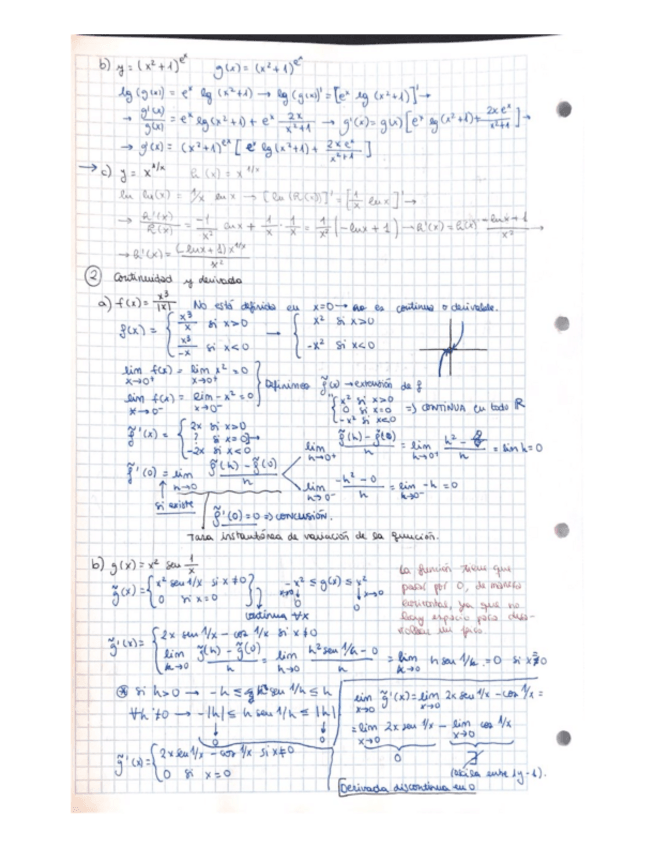 b) y = (x² + 1)^(eˣ)   g(x) = (x² + 1)^(eˣ)
lg (g(x)) = eˣ lg (x²+1) → lg (g(x))' = [eˣ lg (x²+1)]' →
→ g'(x)/g(x) = eˣ lg(x²+1) + eˣ 2x/(x²+1) → g'(x) = g(x) [eˣ lg(x²+1) + 2x eˣ/(x²+1)] →
→ g'(x) = (x²+1)^(eˣ) [eˣ lg(x²+1) + 2x eˣ/(x²+1)]
→ c) y = x^(1/x)   h(x) = x^(1/x)
ln h(x) = 1/x ln x → [ln (h(x))]' = [1/x ln x]' →
→ h'(x)/h(x) = -1/x² ln x + 1/x · 1/x = 1/x² (-ln x + 1) → h'(x) = h(x) (-ln x + 1)/x² →
→ h'(x) = (-ln x + 1) x^(1/x)/x²
② Continuidad y derivada
a) f(x) = x³/|x|   No está definida en x=0 → no es continua o derivable.
f(x) = { x³/x si x>0 → { x² si x>0
x³/-x si x<0   -x² si x<0
lim x→0⁺ f(x) = lim x→0⁺ x² = 0
lim x→0⁻ f(x) = lim x→0⁻ -x² = 0 } Definimos f̃(x) → extensión de f
{ x² si x>0
0 si x=0 ⇒ CONTINUA en todo ℝ
-x² si x<0
f̃'(x) = { 2x si x>0
? si x=0
-2x si x<0
lim h→0⁺ (f̃(h) - f̃(0))/h = lim h→0⁺ (h² - 0)/h = lim h = 0
f̃'(0) = lim h→0 (f̃(h) - f̃(0))/h
lim h→0⁻ (-h² - 0)/h = lim h→0⁻ -h = 0
si existe
f̃'(0) = 0 ⇒ conclusión.
Tasa instantánea de variación de la función.
b) g(x) = x² sen 1/x
g̃(x) = { x² sen 1/x si x≠0
0 si x=0 }
continua ∀x
-x² ≤ g(x) ≤ x²
x→0 ↓ 0   ↓ x→0 0
La función tiene que
pasar por 0, de manera
ya que no
hay espacio para
g̃'(x) = { 2x sen 1/x - cos 1/x si x≠0
lim h→0 (g̃(h) - g̃(0))/h = lim h→0 (h² sen 1/h - 0)/h = lim h→0 h sen 1/h = 0 si x=0
⊛ si h>0 → -h ≤ h sen 1/h ≤ h
∀h ≠0 → -|h| ≤ h sen 1/h ≤ |h|
↓ 0   ↓ 0
g̃'(x) = { 2x sen 1/x - cos 1/x si x≠0
0 si x=0
lim x→0 g̃'(x) = lim x→0 2x sen 1/x - cos 1/x =
= lim x→0 2x sen 1/x - lim x→0 cos 1/x
0   ∄
(oscila entre 1 y -1).
Derivada discontinua en 0